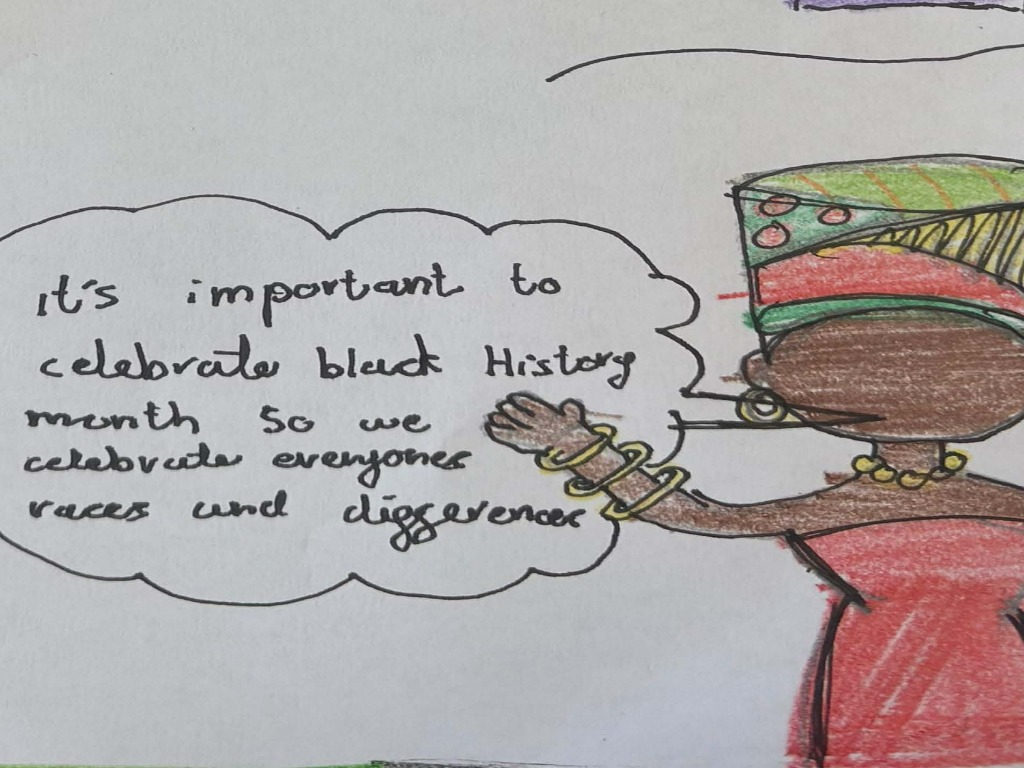 It's important to
celebrate black History
month so we
celebrate everyones
races and differences